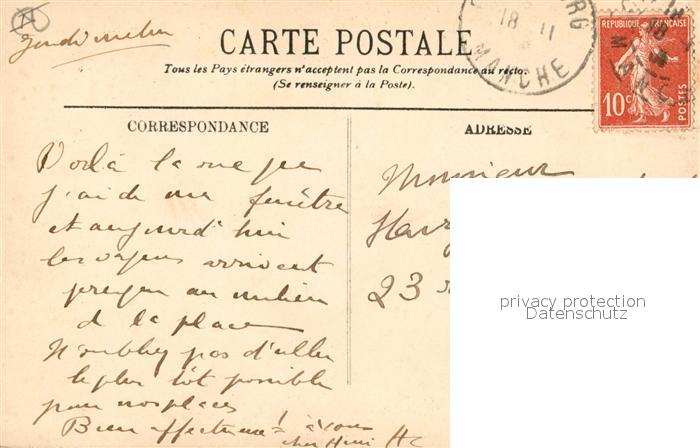 Jeudi matin
CARTE POSTALE
Tous les Pays étrangers n'acceptent pas la Correspondance au recto.
(Se renseigner à la Poste).
18 11
MANCHE
REPUBLIQUE FRANÇAISE
10c
POSTES
CORRESPONDANCE
Voilà la vue que
j'ai de ma fenêtre
et aujourd'hui
les vagues arrivent
presque au milieu
de la place
N'oubliez pas d'aller
le plus tôt possible
pour nos places
Bien affectueuse! à vous
cher
ADRESSE
Monsieur
23
privacy protection
Datenschutz